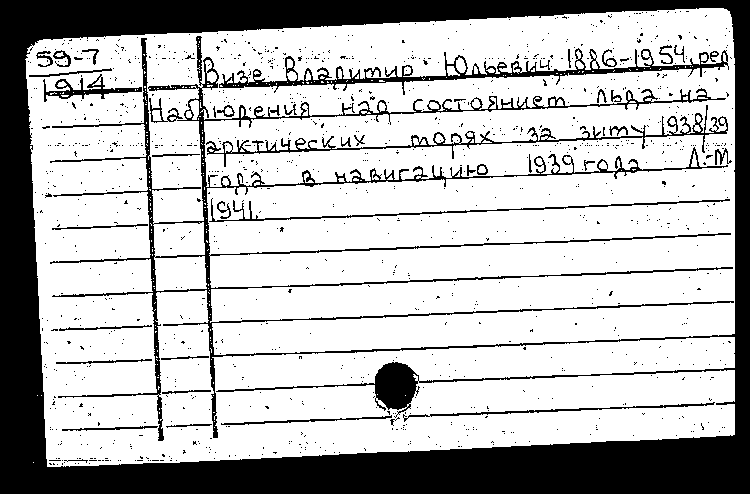 59-7
1914
Визе, Владимир Юльевич, 1886-1954, ред
Наблюдения над состоянием льда на
арктических морях за зиму 1938/39
года в навигацию 1939 года Л.-М.
1941.